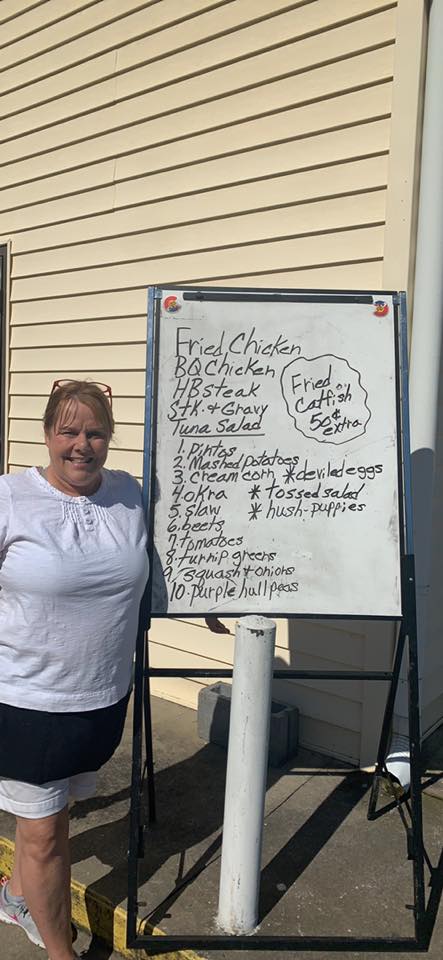 Fried Chicken
BQ Chicken
HB steak
Stk. & Gravy
Tuna Salad
Fried
Catfish
50¢
extra
1. pintos
2. Mashed potatoes
3. cream corn *deviled eggs
4. okra *tossed salad
5. slaw * hush-puppies
6. beets
7. tomatoes
8. turnip greens
9. squash & onions
10. purple hull peas